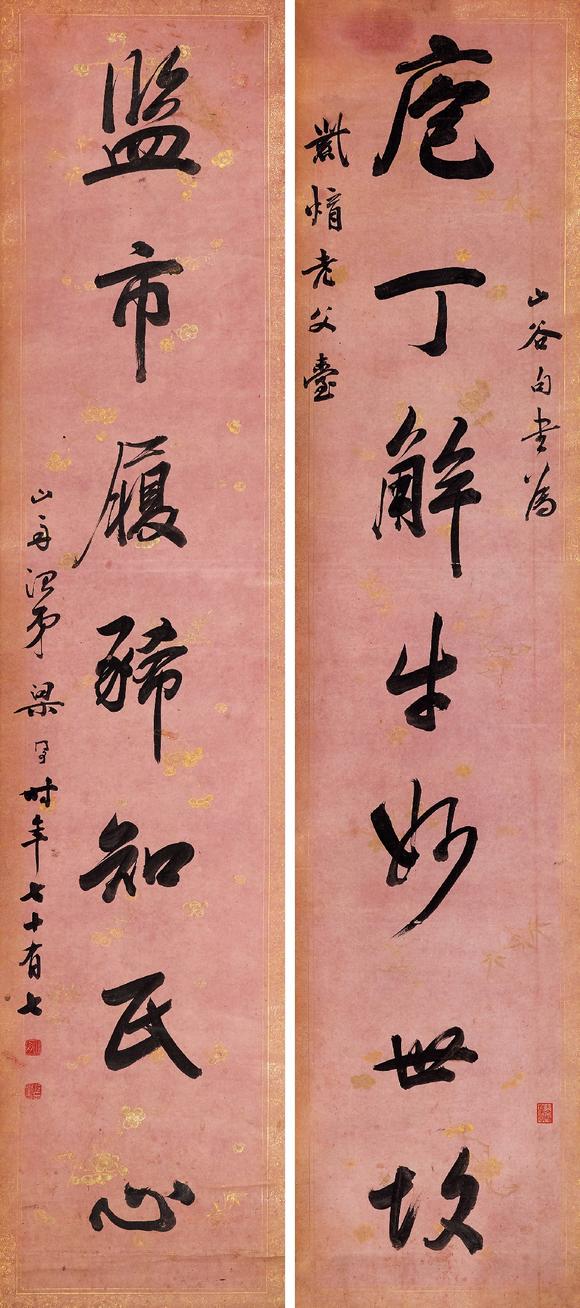 山谷句書為
庖丁觧牛妙世故
愔老父臺
監市履豨知民心
山舟治弟梁同書時年七十有七